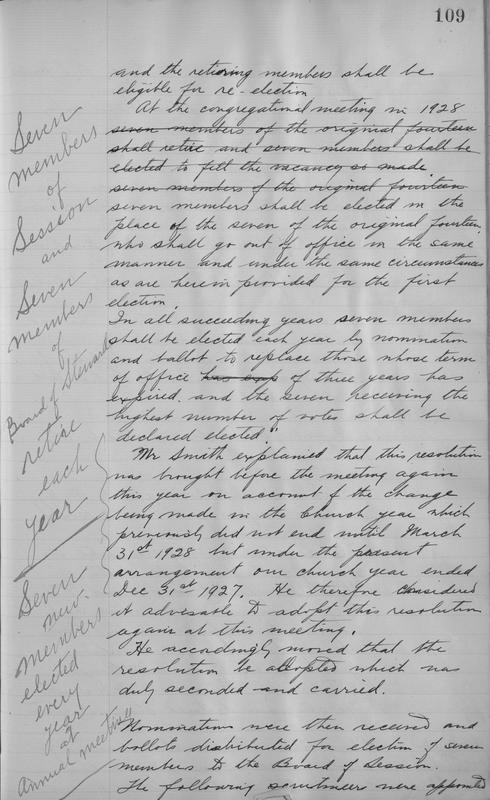 109
and the retiring members shall be
eligible for re-election
At the congregational meeting in 1928
seven members of the original fourteen
shall retire and seven members shall be
elected to fill the vacancy so made.
seven members of the original fourteen
seven members shall be elected in the
place of the seven of the original fourteen,
who shall go out of office in the same
manner and under the same circumstances
as are herein provided for the first
election.
In all succeeding years seven members
shall be elected each year by nomination
and ballot to replace those whose term
of office has exp of three years has
expired, and the seven receiving the
highest number of votes shall be
declared elected."
Mr Smith explained that this resolution
was brought before the meeting again
this year on account of the change
being made in the Church year which
previously did not end until March
31st 1928 but under the present
arrangement our church year ended
Dec 31st 1927. He therefore considered
it advesable to adopt this resolution
again at this meeting.
He accordingly moved that the
resolution be adopted which was
duly seconded and carried.
Nominations were then received and
ballots distributed for election of seven
members to the Board of Session.
The following scrutineers were appointed
Seven
members
of
Session
and
Seven
members
of
Board of Stewards
retire
each
year
Seven
new
members
elected
every
year
at
Annual meeting"